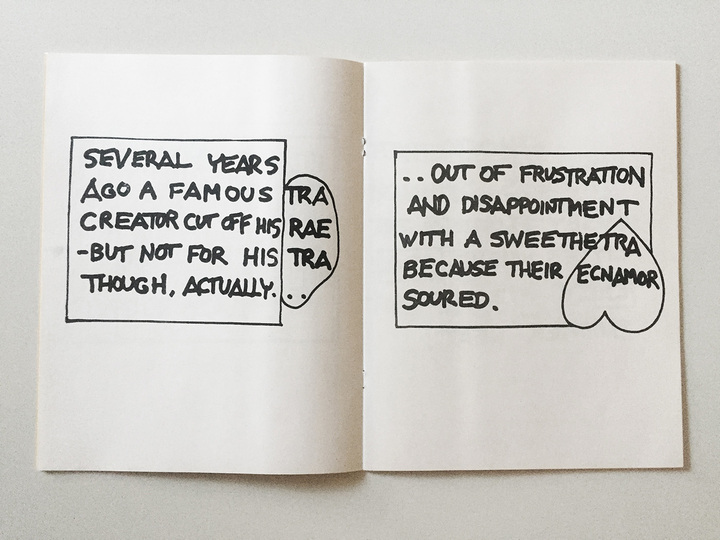 SEVERAL YEARS
AGO A FAMOUS TRA
CREATOR CUT OFF HIS RAE
-BUT NOT FOR HIS TRA
THOUGH, ACTUALLY.
..OUT OF FRUSTRATION
AND DISAPPOINTMENT
WITH A SWEETHETRA
BECAUSE THEIR ECNAMOR
SOURED.